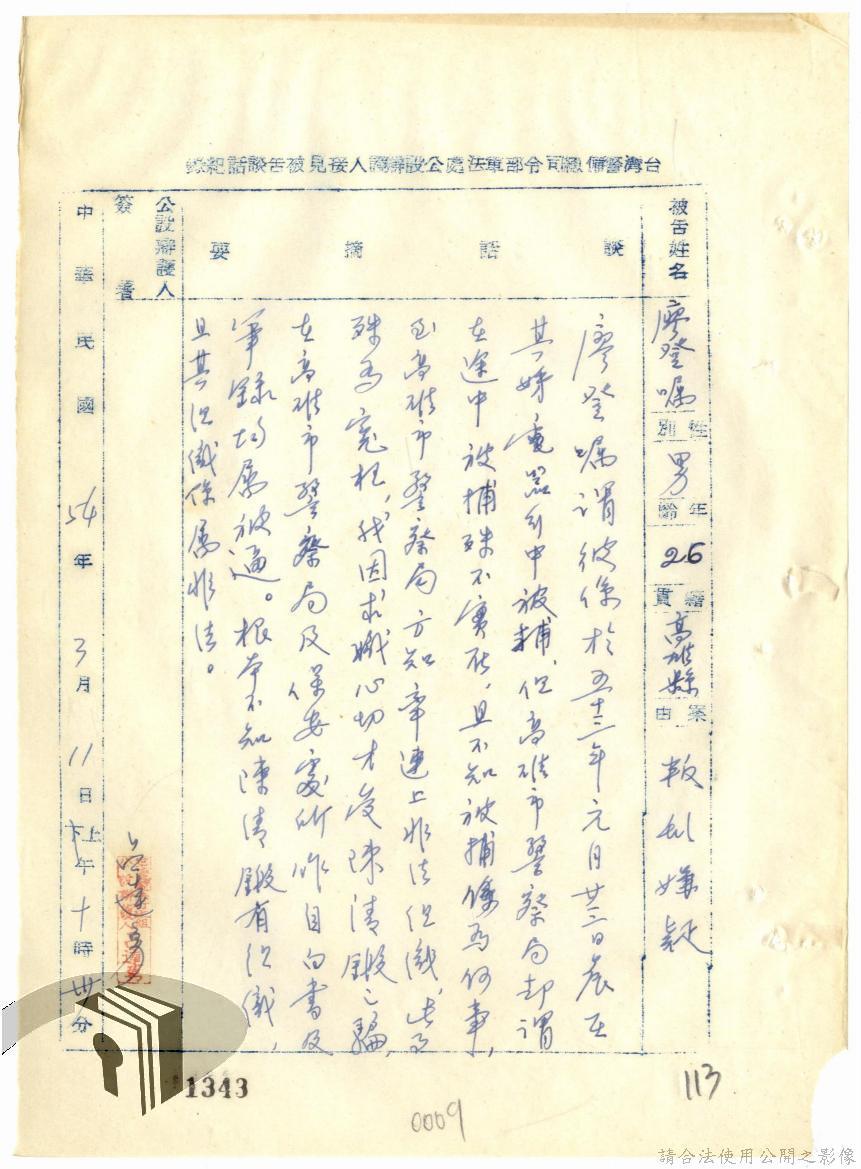 台灣警備總司令部軍法處公設辯護人接見被告談話紀錄
被告姓名 廖登囑 性別 男 年齡 26 籍貫 高雄縣 案由 叛乱嫌疑
談話摘要
廖登囑謂彼係於五十三年元月廿三日晨在
其姊電器行中被捕,但高雄市警察局却謂
在途中被捕殊不實在,且不知被捕係為何事,
至高雄市警察局方知牽連上非法组織,此為
殊為寃枉,我因求職心切才受陳清鍛之騙,
在高雄市警察局及保安處所作自白書及
筆錄均屬被逼。根本不知陳清鍛有组織,
且其组織係屬非法。
公設辯護人
簽署
中華民國 54 年 3 月 11 日 上下午 十 時 卅 分
1343
113
0009
請合法使用公開之影像